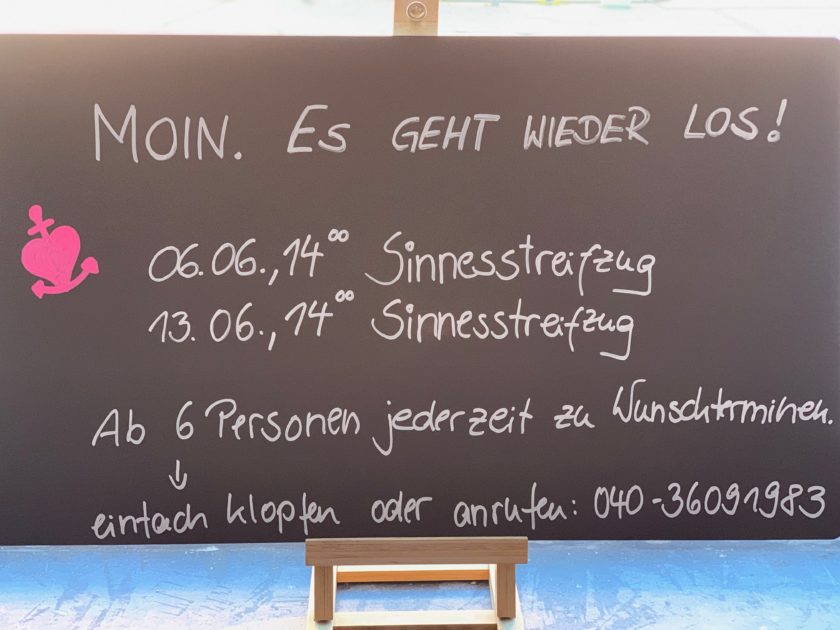 MOIN. ES GEHT WIEDER LOS!
06.06., 14⁰⁰ Sinnesstreifzug
13.06., 14⁰⁰ Sinnesstreifzug
Ab 6 Personen jederzeit zu Wunschterminen.
einfach klopfen oder anrufen: 040-36091983